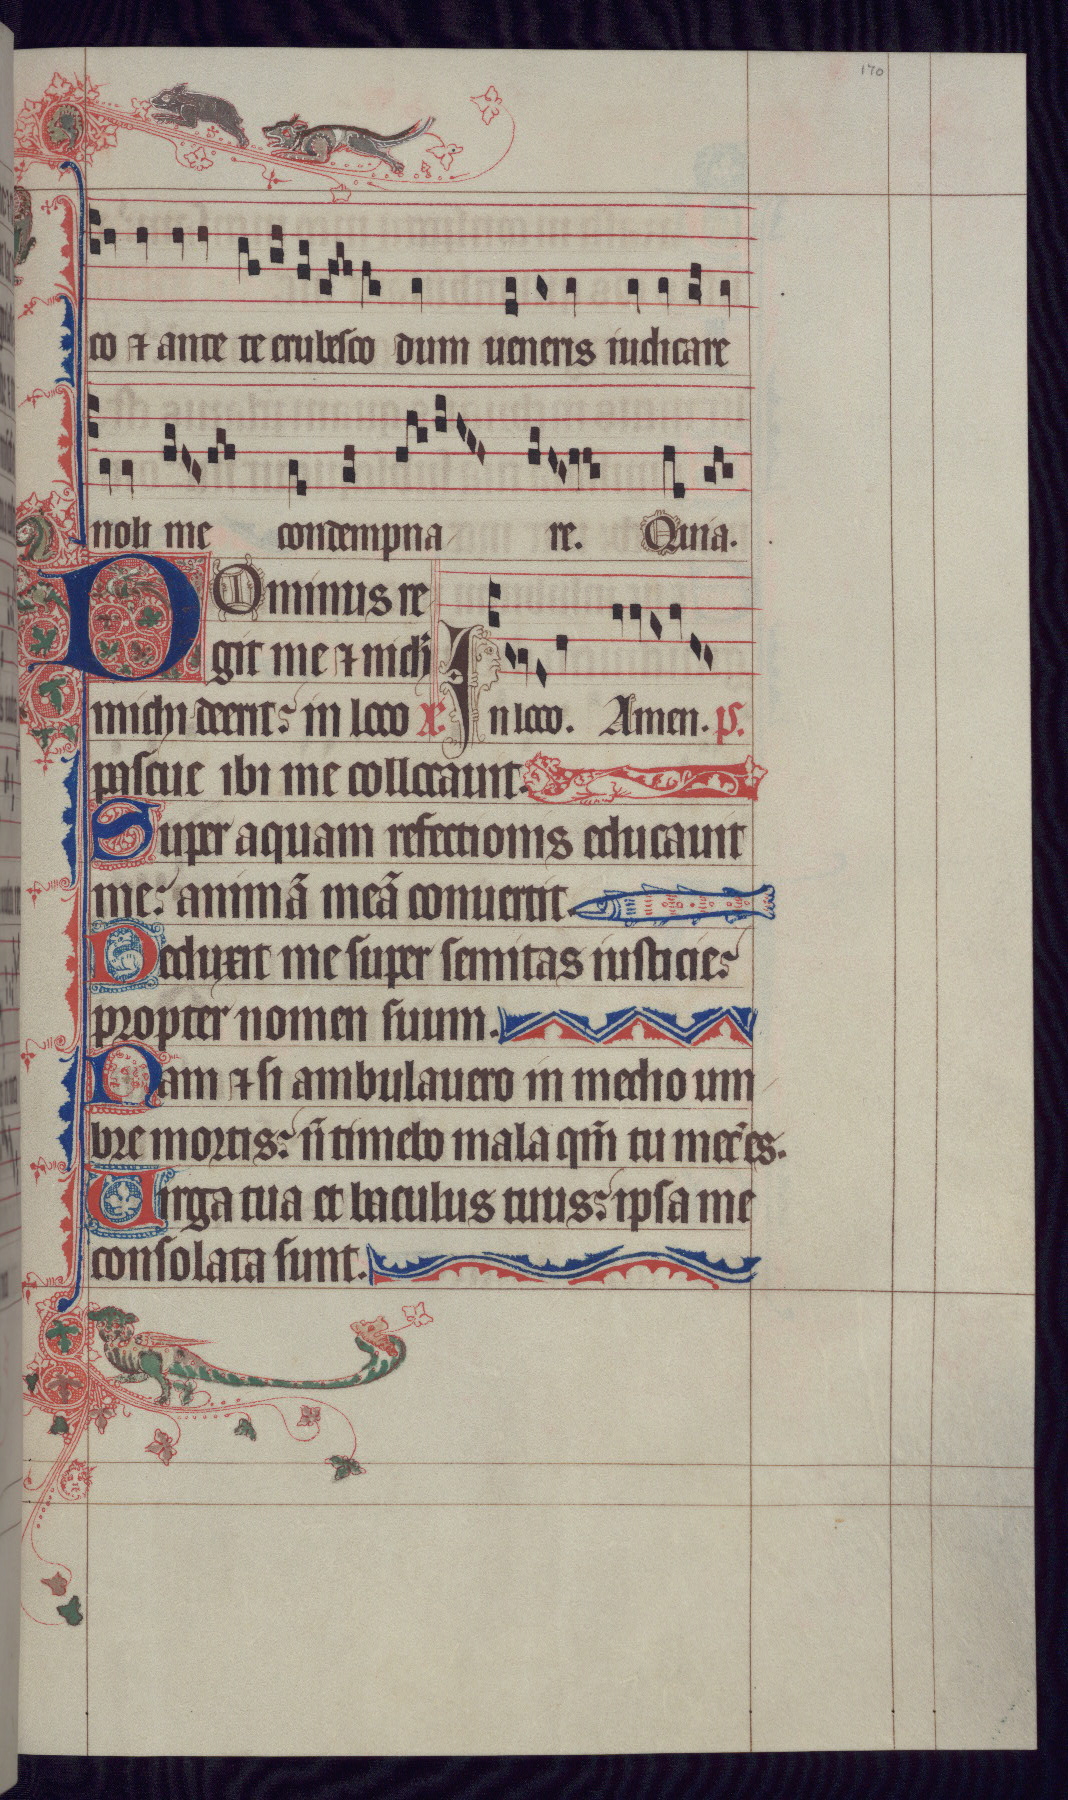 170
co ⁊ ante te erubesco dum ueneris iudicare
noli me condempnare. Quia.
Dominus re
git me ⁊ nichil
michi deerit: in loco
In loco. Amen. ps.
pascue ibi me collocauit.
Super aquam refectionis educauit
me: animā meā conuertit.
Deduxit me super semitas iusticie:
propter nomen suum.
Nam ⁊ si ambulauero in medio um
bre mortis: n̄ timebo mala qm̄ tu mecū es.
Uirga tua et baculus tuus: ipsa me
consolata sunt.